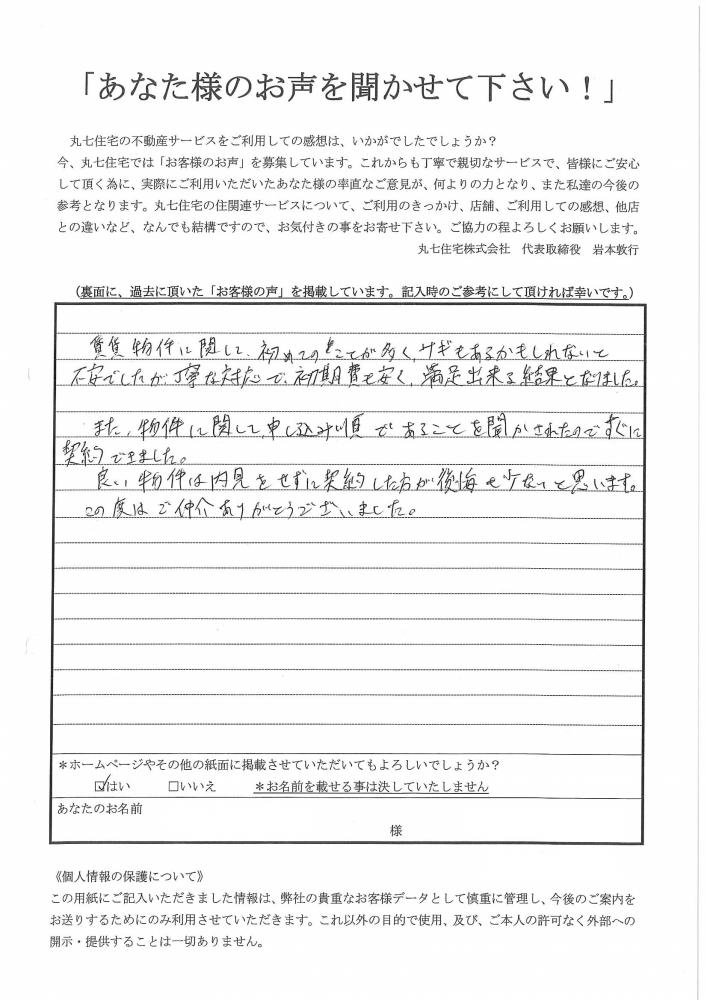 「あなた様のお声を聞かせて下さい！」
丸七住宅の不動産サービスをご利用しての感想は、いかがでしたでしょうか？
今、丸七住宅では「お客様のお声」を募集しています。これからも丁寧で親切なサービスで、皆様にご安心
して頂く為に、実際にご利用いただいたあなた様の率直なご意見が、何よりの力となり、また私達の今後の
参考となります。丸七住宅の住関連サービスについて、ご利用のきっかけ、店舗、ご利用しての感想、他店
との違いなど、なんでも結構ですので、お気付きの事をお寄せ下さい。ご協力の程よろしくお願いします。
丸七住宅株式会社　代表取締役　岩本敦行
（裏面に、過去に頂いた「お客様の声」を掲載しています。記入時のご参考にして頂ければ幸いです。）
賃貸物件に関して、初めてのことが多く、サギもあるかもしれないと
不安でしたが、丁寧な対応で、初期費も安く、満足出来る結果となりました。
また、物件に関して、申し込み順であることを聞かされたのですぐに
契約できました。
良い物件は内見をせずに契約した方が後悔も少ないと思います。
この度はご仲介ありがとうございました。
＊ホームページやその他の紙面に掲載させていただいてもよろしいでしょうか？
☑はい　□いいえ　＊お名前を載せる事は決していたしません
あなたのお名前
様
《個人情報の保護について》
この用紙にご記入いただきました情報は、弊社の貴重なお客様データとして慎重に管理し、今後のご案内を
お送りするためにのみ利用させていただきます。これ以外の目的で使用、及び、ご本人の許可なく外部への
開示・提供することは一切ありません。